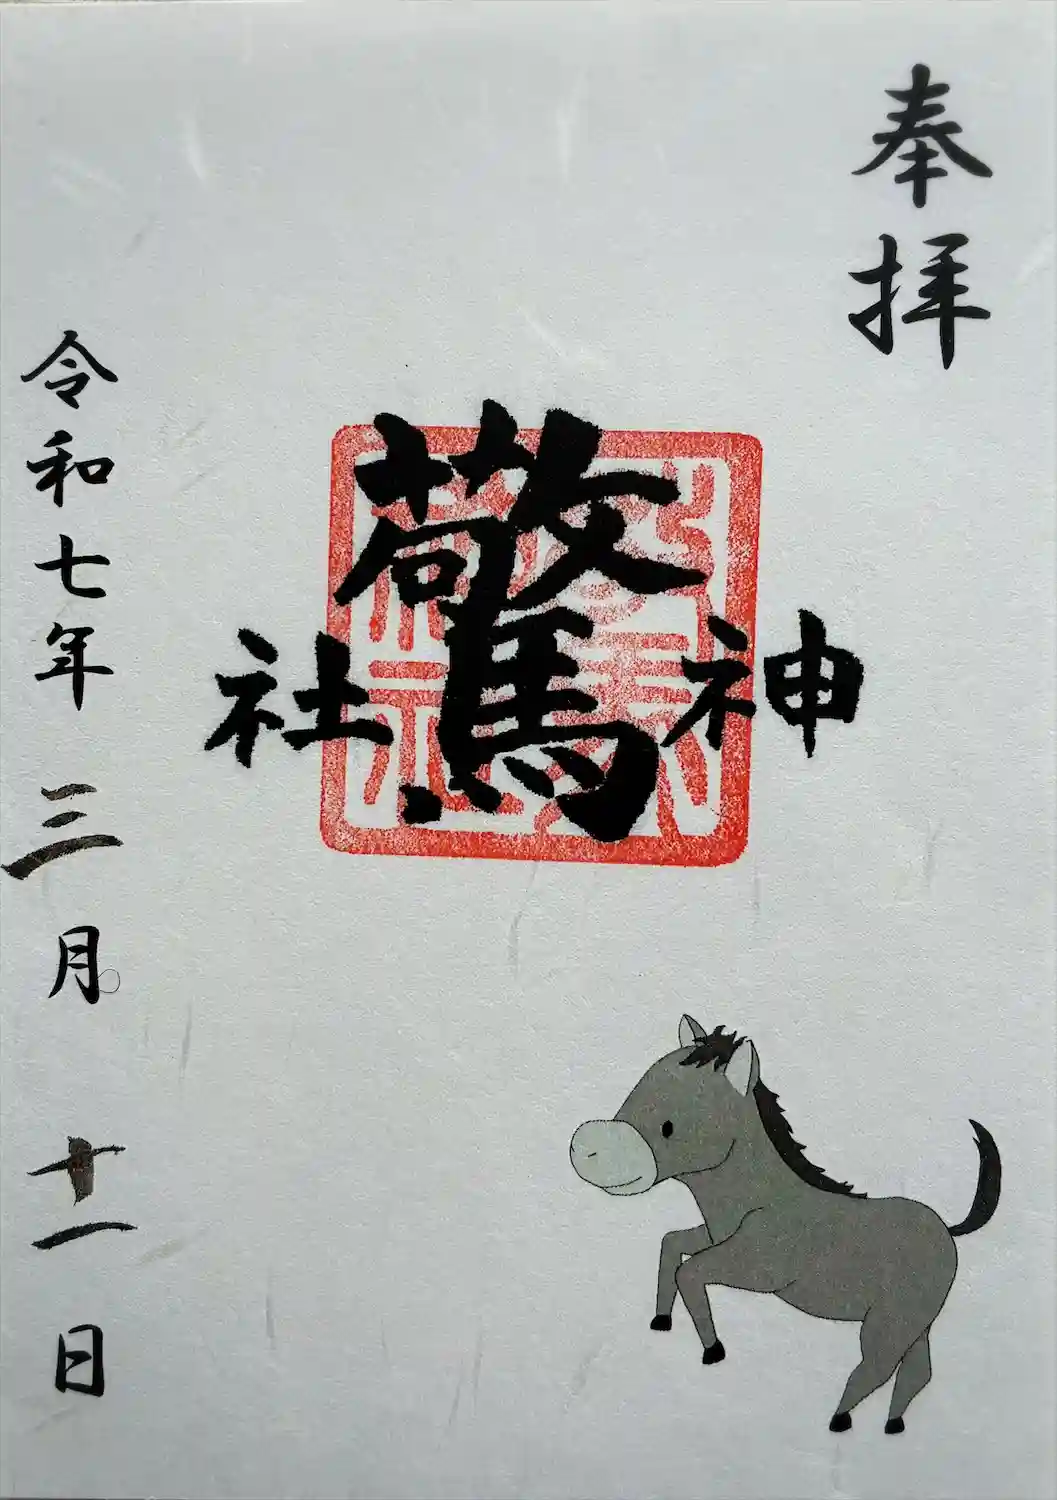 奉拝
驚神社
令和七年三月十一日